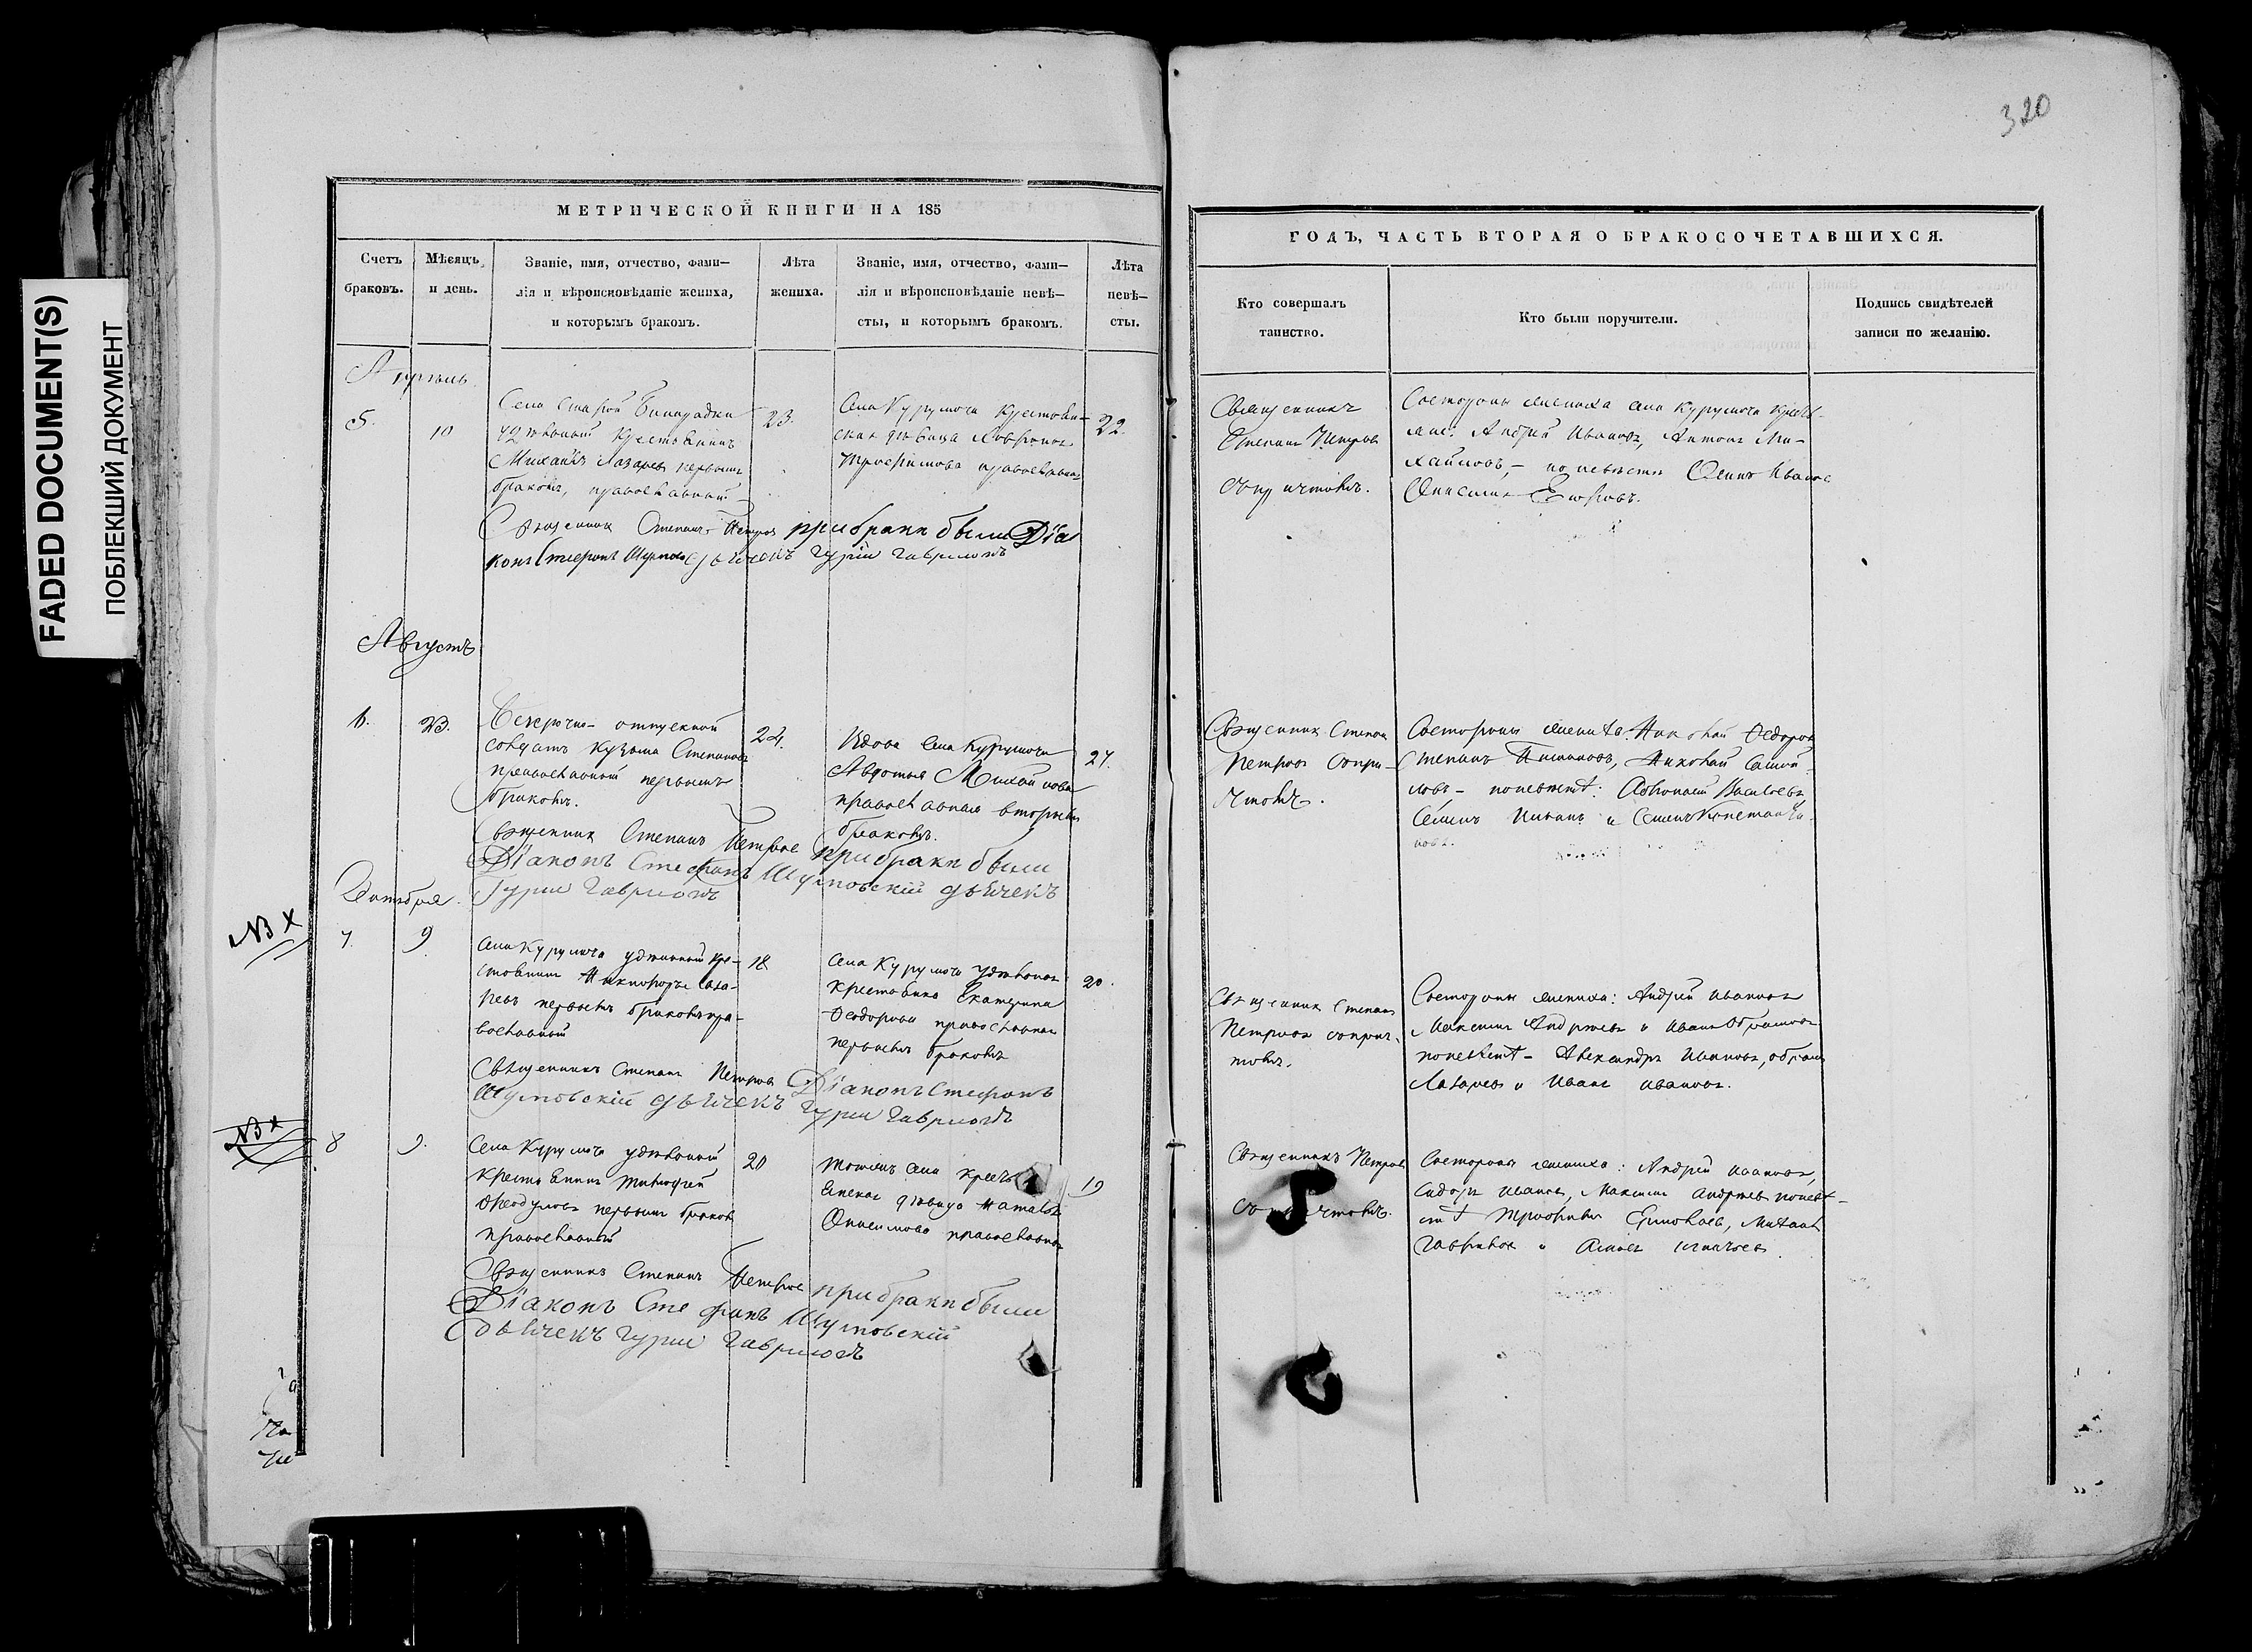 FADED DOCUMENT(S)
ПОБЛЕКШИЙ ДОКУМЕНТ
320
МЕТРИЧЕСКОЙ КНИГИ НА 185
Счетъ браковъ.
Мѣсяцъ и день.
Званіе, имя, отчество, фами-
лія и вѣроисповѣданіе жениха,
и которымъ бракомъ.
Лѣта
жениха.
Званіе, имя, отчество, фами-
лія и вѣроисповѣданіе невѣ-
сты, и которымъ бракомъ.
Лѣта
невѣ-
сты.
Апрѣль
5.
10
Села Старой Бинарадки
удѣльный крестьянинъ
Михаилъ Лазаревъ первымъ
бракомъ, православный
23.
Села Курумоча крестьян-
ская дѣвица
Трофимова православная
22.
Священникъ Степанъ Петровъ при бракѣ были Діа
конъ Стефанъ дьячекъ Гурій Гавриловъ
Августъ
6.
23.
Безсрочно-отпускной
солдатъ Кузьма Степановъ
православный первымъ
бракомъ.
24.
Вдова села Курумоча
Авдотья Михайлова
православная вторымъ
бракомъ.
27.
Священникъ Степанъ Петровъ при бракѣ были
Діаконъ Стефанъ Шумовскій дьячекъ
Гурій Гавриловъ
Октября.
NB X
7.
9
Села Курумоча удѣльный кре-
стьянинъ Никифоръ Лаза-
ревъ первымъ бракомъ пра-
вославный
18
Села Курумоча удѣльная
крестьянка Екатерина
Феодорова православная
первымъ бракомъ
20.
Священникъ Степанъ Петровъ Діаконъ Стефанъ
Шумовскій дьячекъ Гурій Гавриловъ
NB X
8
9.
Села Курумоча удѣльный
крестьянинъ Тимофей
Феодуловъ первымъ бракомъ
православный
20
Тогожъ села крестья
янская дѣвица Наталья
Онисимова православная
19
Священникъ Степанъ Петровъ при бракѣ были
Діаконъ Стефанъ Шумовскій
дьячекъ Гурій Гавриловъ
ГОДЪ, ЧАСТЬ ВТОРАЯ О БРАКОСОЧЕТАВШИХСЯ.
Кто совершалъ
таинство.
Кто были поручители.
Подпись свидѣтелей
записи по желанію.
Священникъ
Степанъ Петровъ
съ причтомъ.
Состороны жениха села Курумоча крест-
яне: Андрей Ивановъ, Антонъ Ми-
хайловъ, - по невѣстѣ Иванов
Онисимъ Егоровъ.
Священникъ Степанъ
Петровъ съ при-
чтомъ.
Состороны жениха: Николай Федоровъ
Степанъ Николай Самой
ловъ - по невѣстѣ: Афонасій Васильевъ
Семенъ и Семенъ Константи
новъ.
Священникъ Степанъ
Петровъ съ прич-
томъ.
Состороны жениха: Андрей Ивановъ
Максимъ Андреевъ и Иванъ
по невѣстѣ - Александръ Ивановъ,
Лазаревъ и Иванъ Ивановъ.
Священникъ Петровъ
съ причтомъ.
Состороны жениха: Андрей Ивановъ,
Сидоръ Ивановъ, Максимъ Андреевъ по невѣ-
стѣ Трофимъ Ермолаевъ, Михаилъ
Гавриловъ и Игнатьевъ.